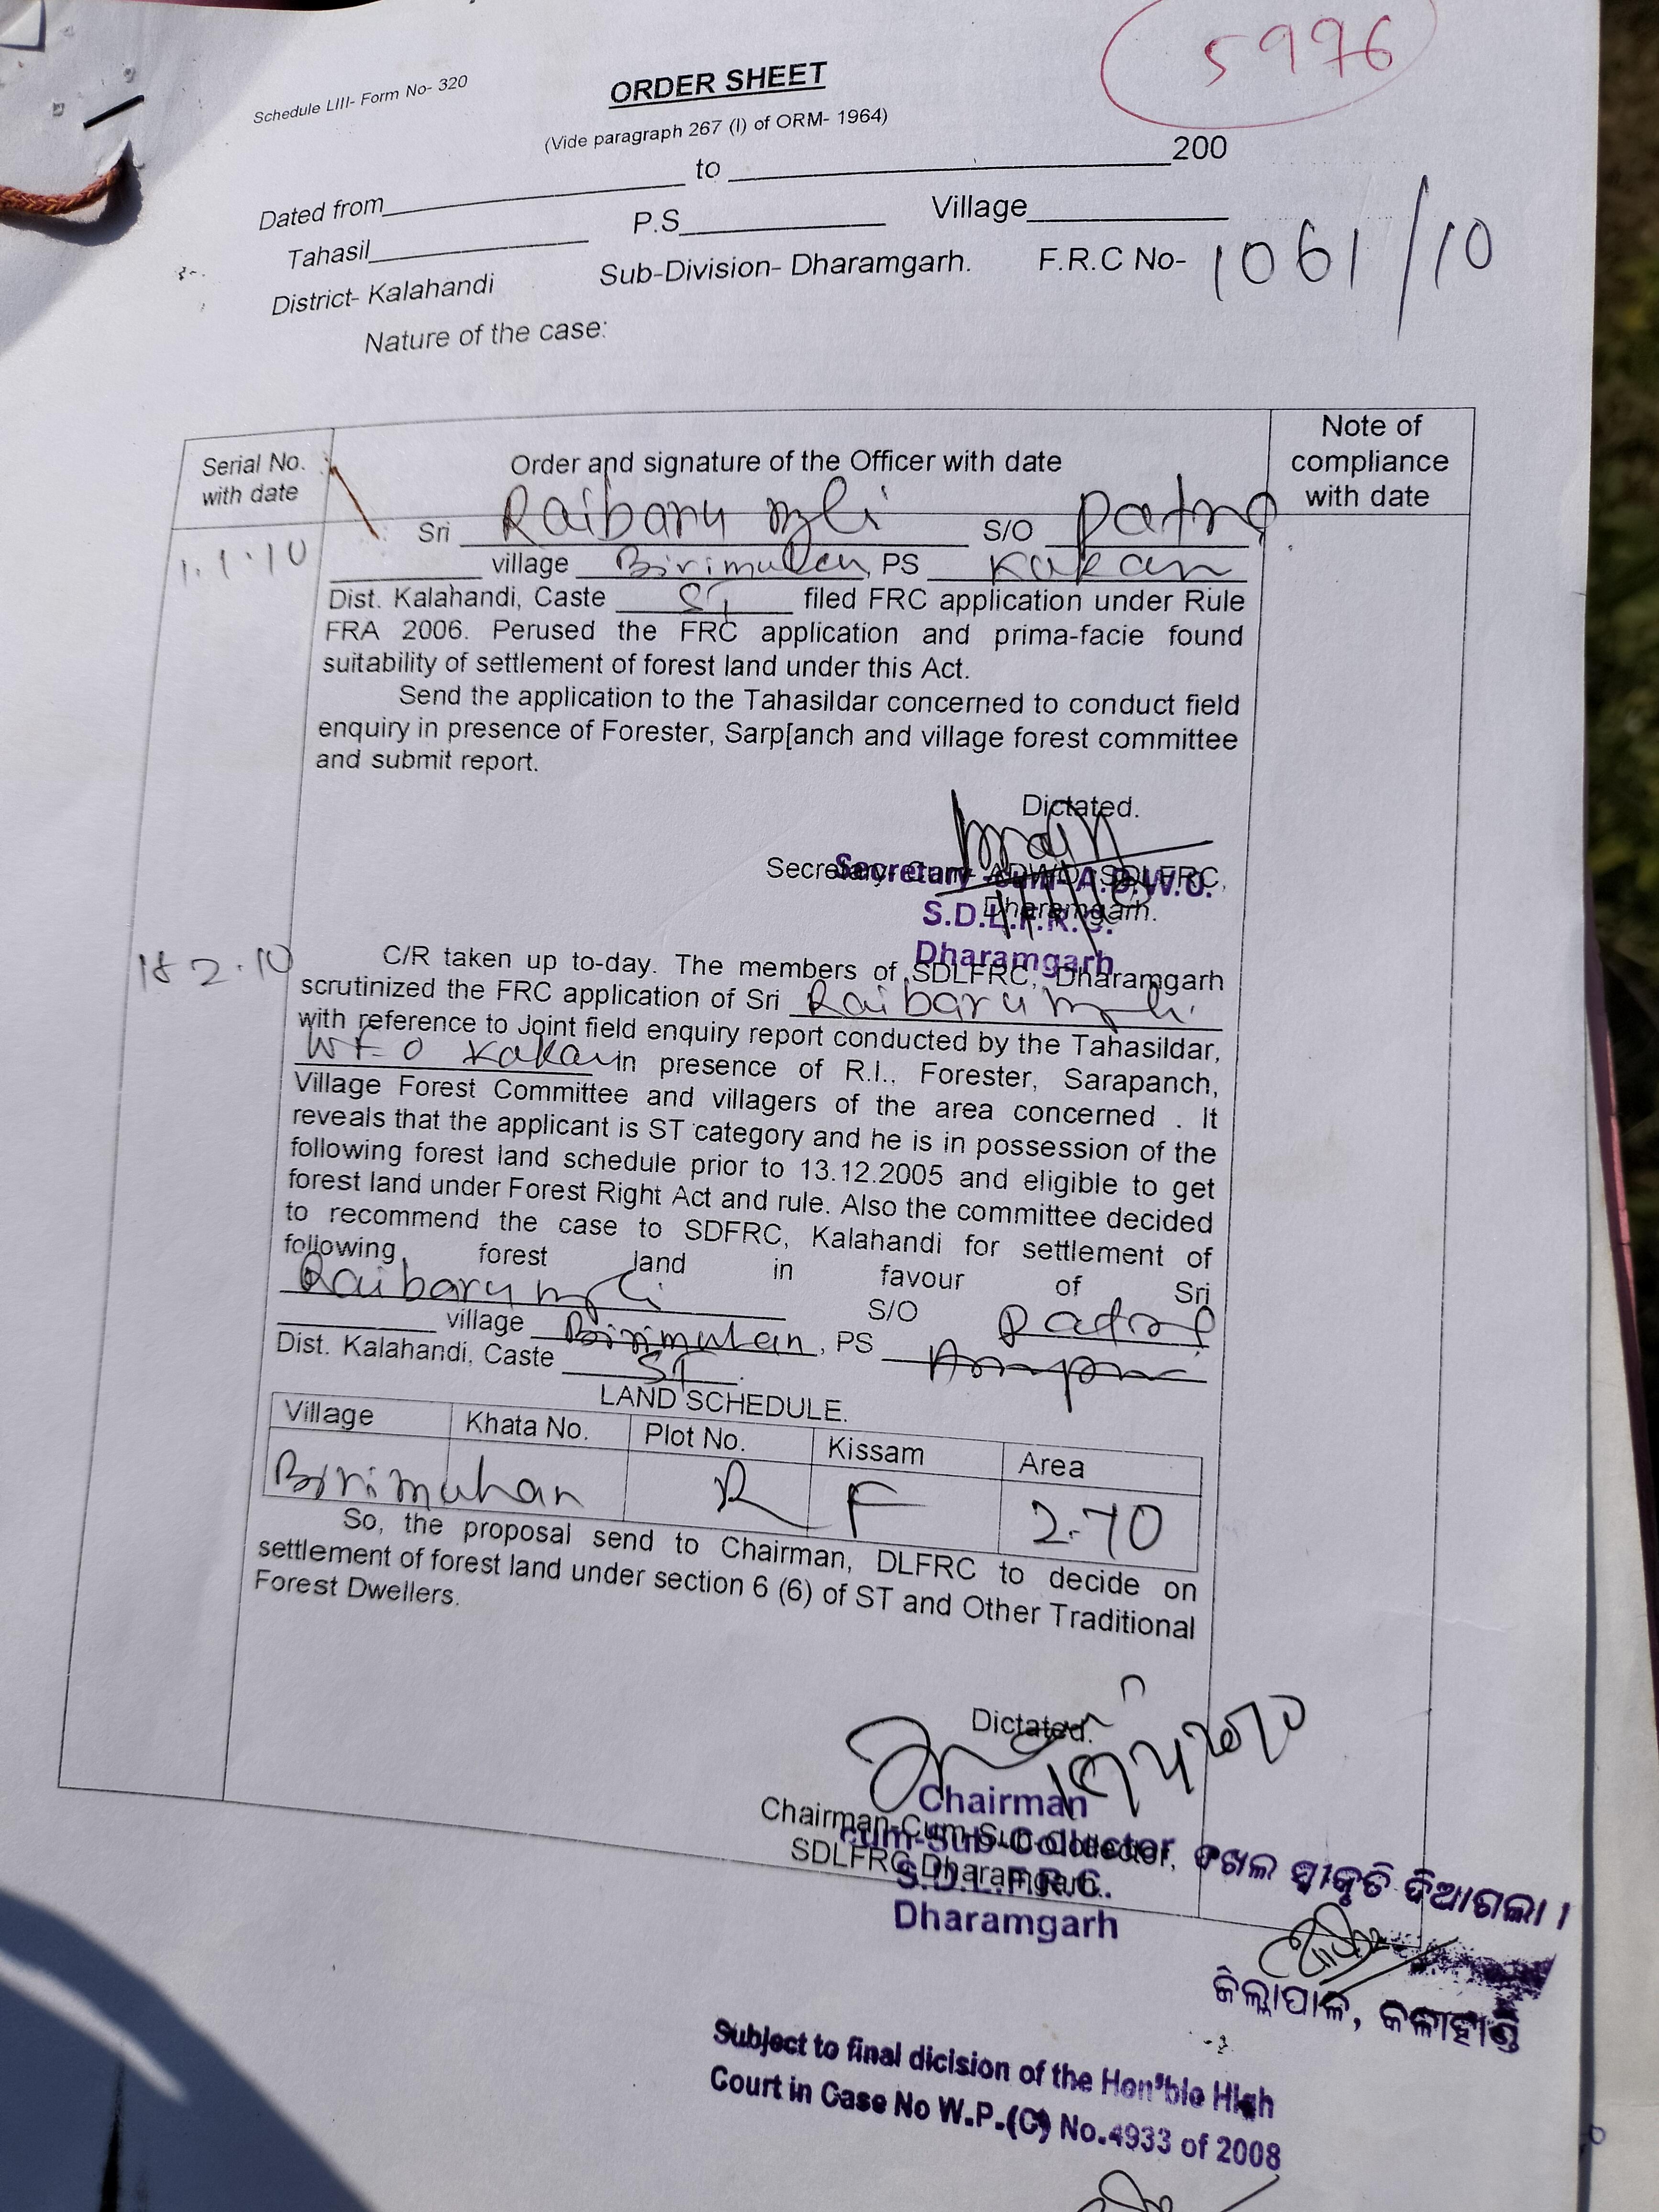 5976
Schedule LIII- Form No- 320
ORDER SHEET
(Vide paragraph 267 (I) of ORM- 1964)
Dated from____ to ____200
Tahasil____ P.S____ Village____
District- Kalahandi Sub-Division- Dharamgarh. F.R.C No- 1061/10
Nature of the case:
Serial No. with date
Order and signature of the Officer with date
Note of compliance with date
1.1.10
Sri Raibaru S/O
village Birimuhan, PS Kokan
Dist. Kalahandi, Caste ST filed FRC application under Rule
FRA 2006. Perused the FRC application and prima-facie found
suitability of settlement of forest land under this Act.
Send the application to the Tahasildar concerned to conduct field
enquiry in presence of Forester, Sarp[anch and village forest committee
and submit report.
Dictated.
Secretary-Cum- ADWO, SDLFRC,
Dharamgarh.
Secretary -cum- A.D.W.O.
S.D.L.F.R.C.
Dharamgarh
18.2.10
C/R taken up to-day. The members of SDLFRC, Dharamgarh
scrutinized the FRC application of Sri Raibaru
with reference to Joint field enquiry report conducted by the Tahasildar,
in presence of R.I., Forester, Sarapanch,
Village Forest Committee and villagers of the area concerned . It
reveals that the applicant is ST category and he is in possession of the
following forest land schedule prior to 13.12.2005 and eligible to get
forest land under Forest Right Act and rule. Also the committee decided
to recommend the case to SDFRC, Kalahandi for settlement of
following forest land in favour of Sri
Raibaru S/O
village Birimuhan, PS
Dist. Kalahandi, Caste ST.
LAND SCHEDULE.
Village Khata No. Plot No. Kissam Area
Birimuhan R F 2.70
So, the proposal send to Chairman, DLFRC to decide on
settlement of forest land under section 6 (6) of ST and Other Traditional
Forest Dwellers.
Dictated.
Chairman-Cum-Sub-Collector,
SDLFRC, Dharamgarh.
Chairman
cum-Sub-Collector
S.D.L.F.R.C.
Dharamgarh
ଦଖଲ ସ୍ଵୀକୃତି ଦିଆଗଲା ।
ଜିଲ୍ଲାପାଳ, କଳାହାଣ୍ଡି
Subject to final dicision of the Hon'ble High
Court in Case No W.P.(C) No.4933 of 2008